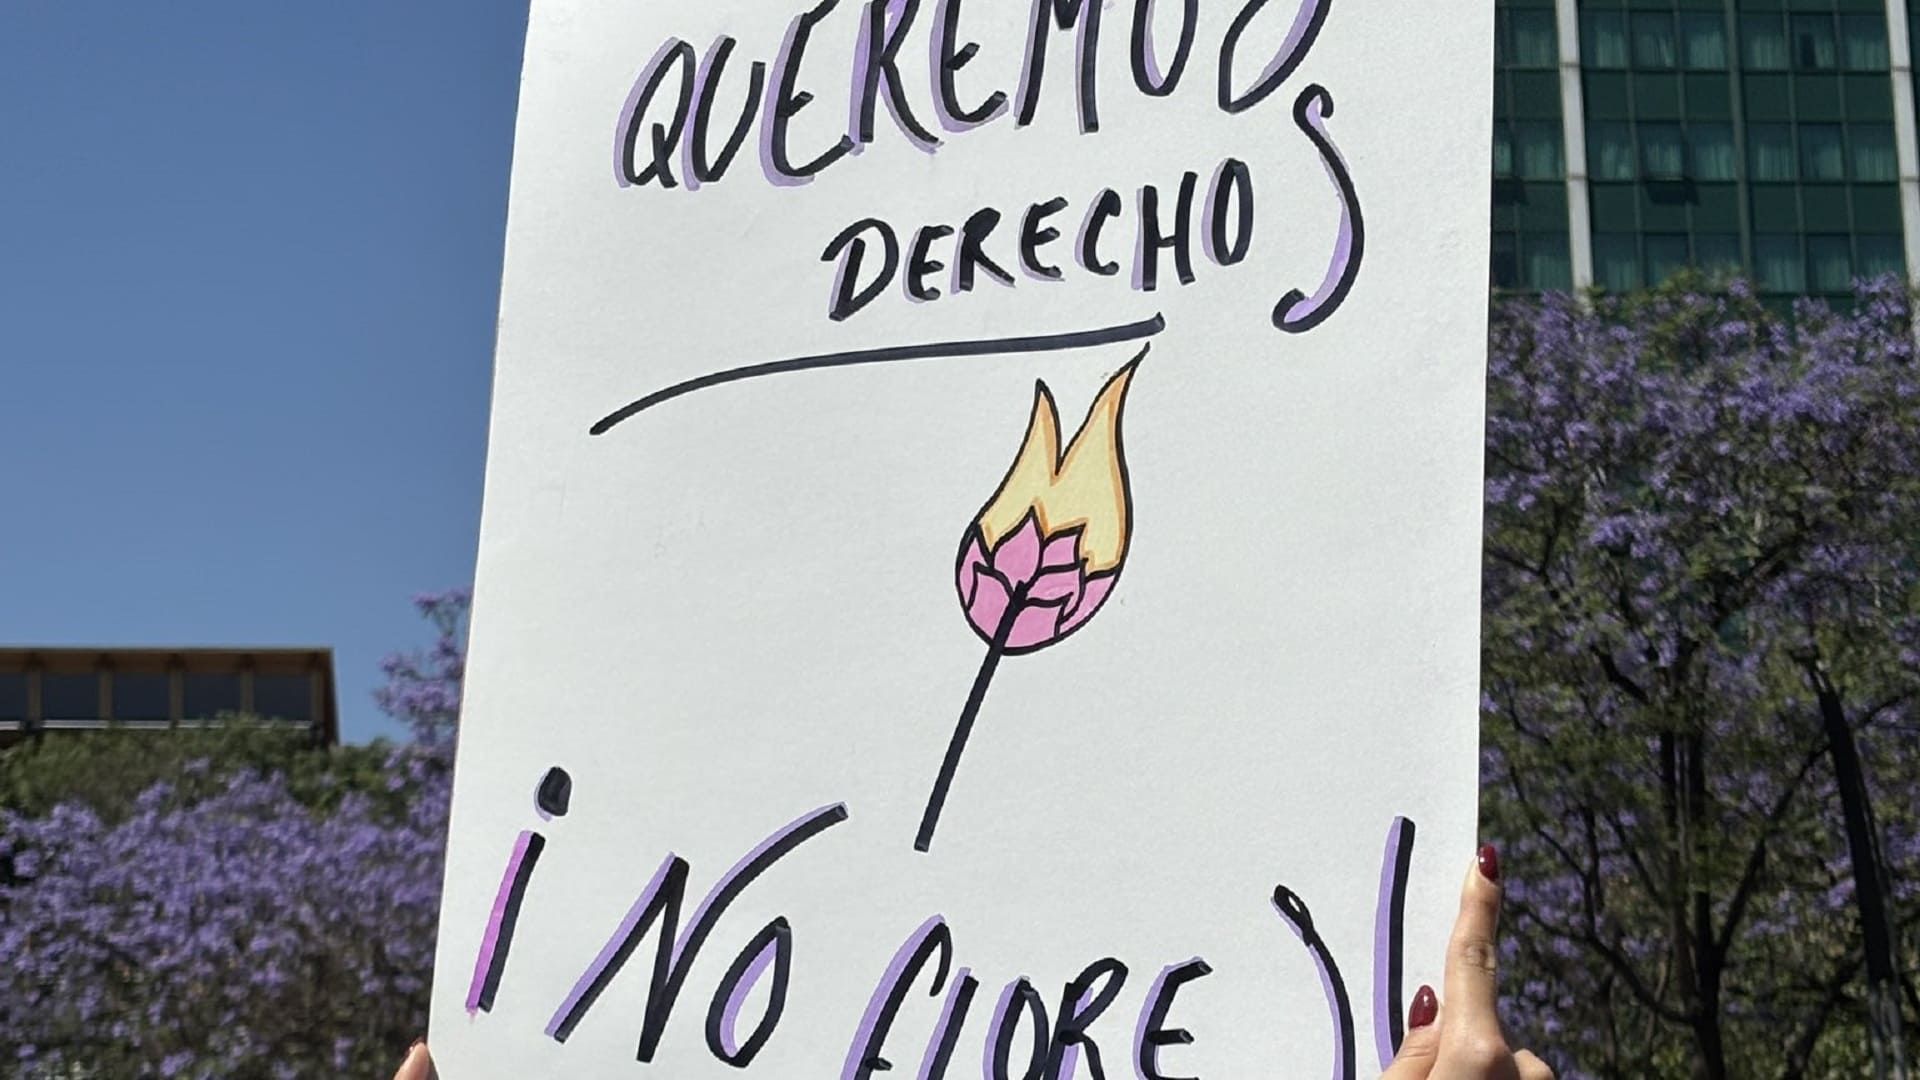 QUEREMOS
DERECHOS
¡NO FLORES!